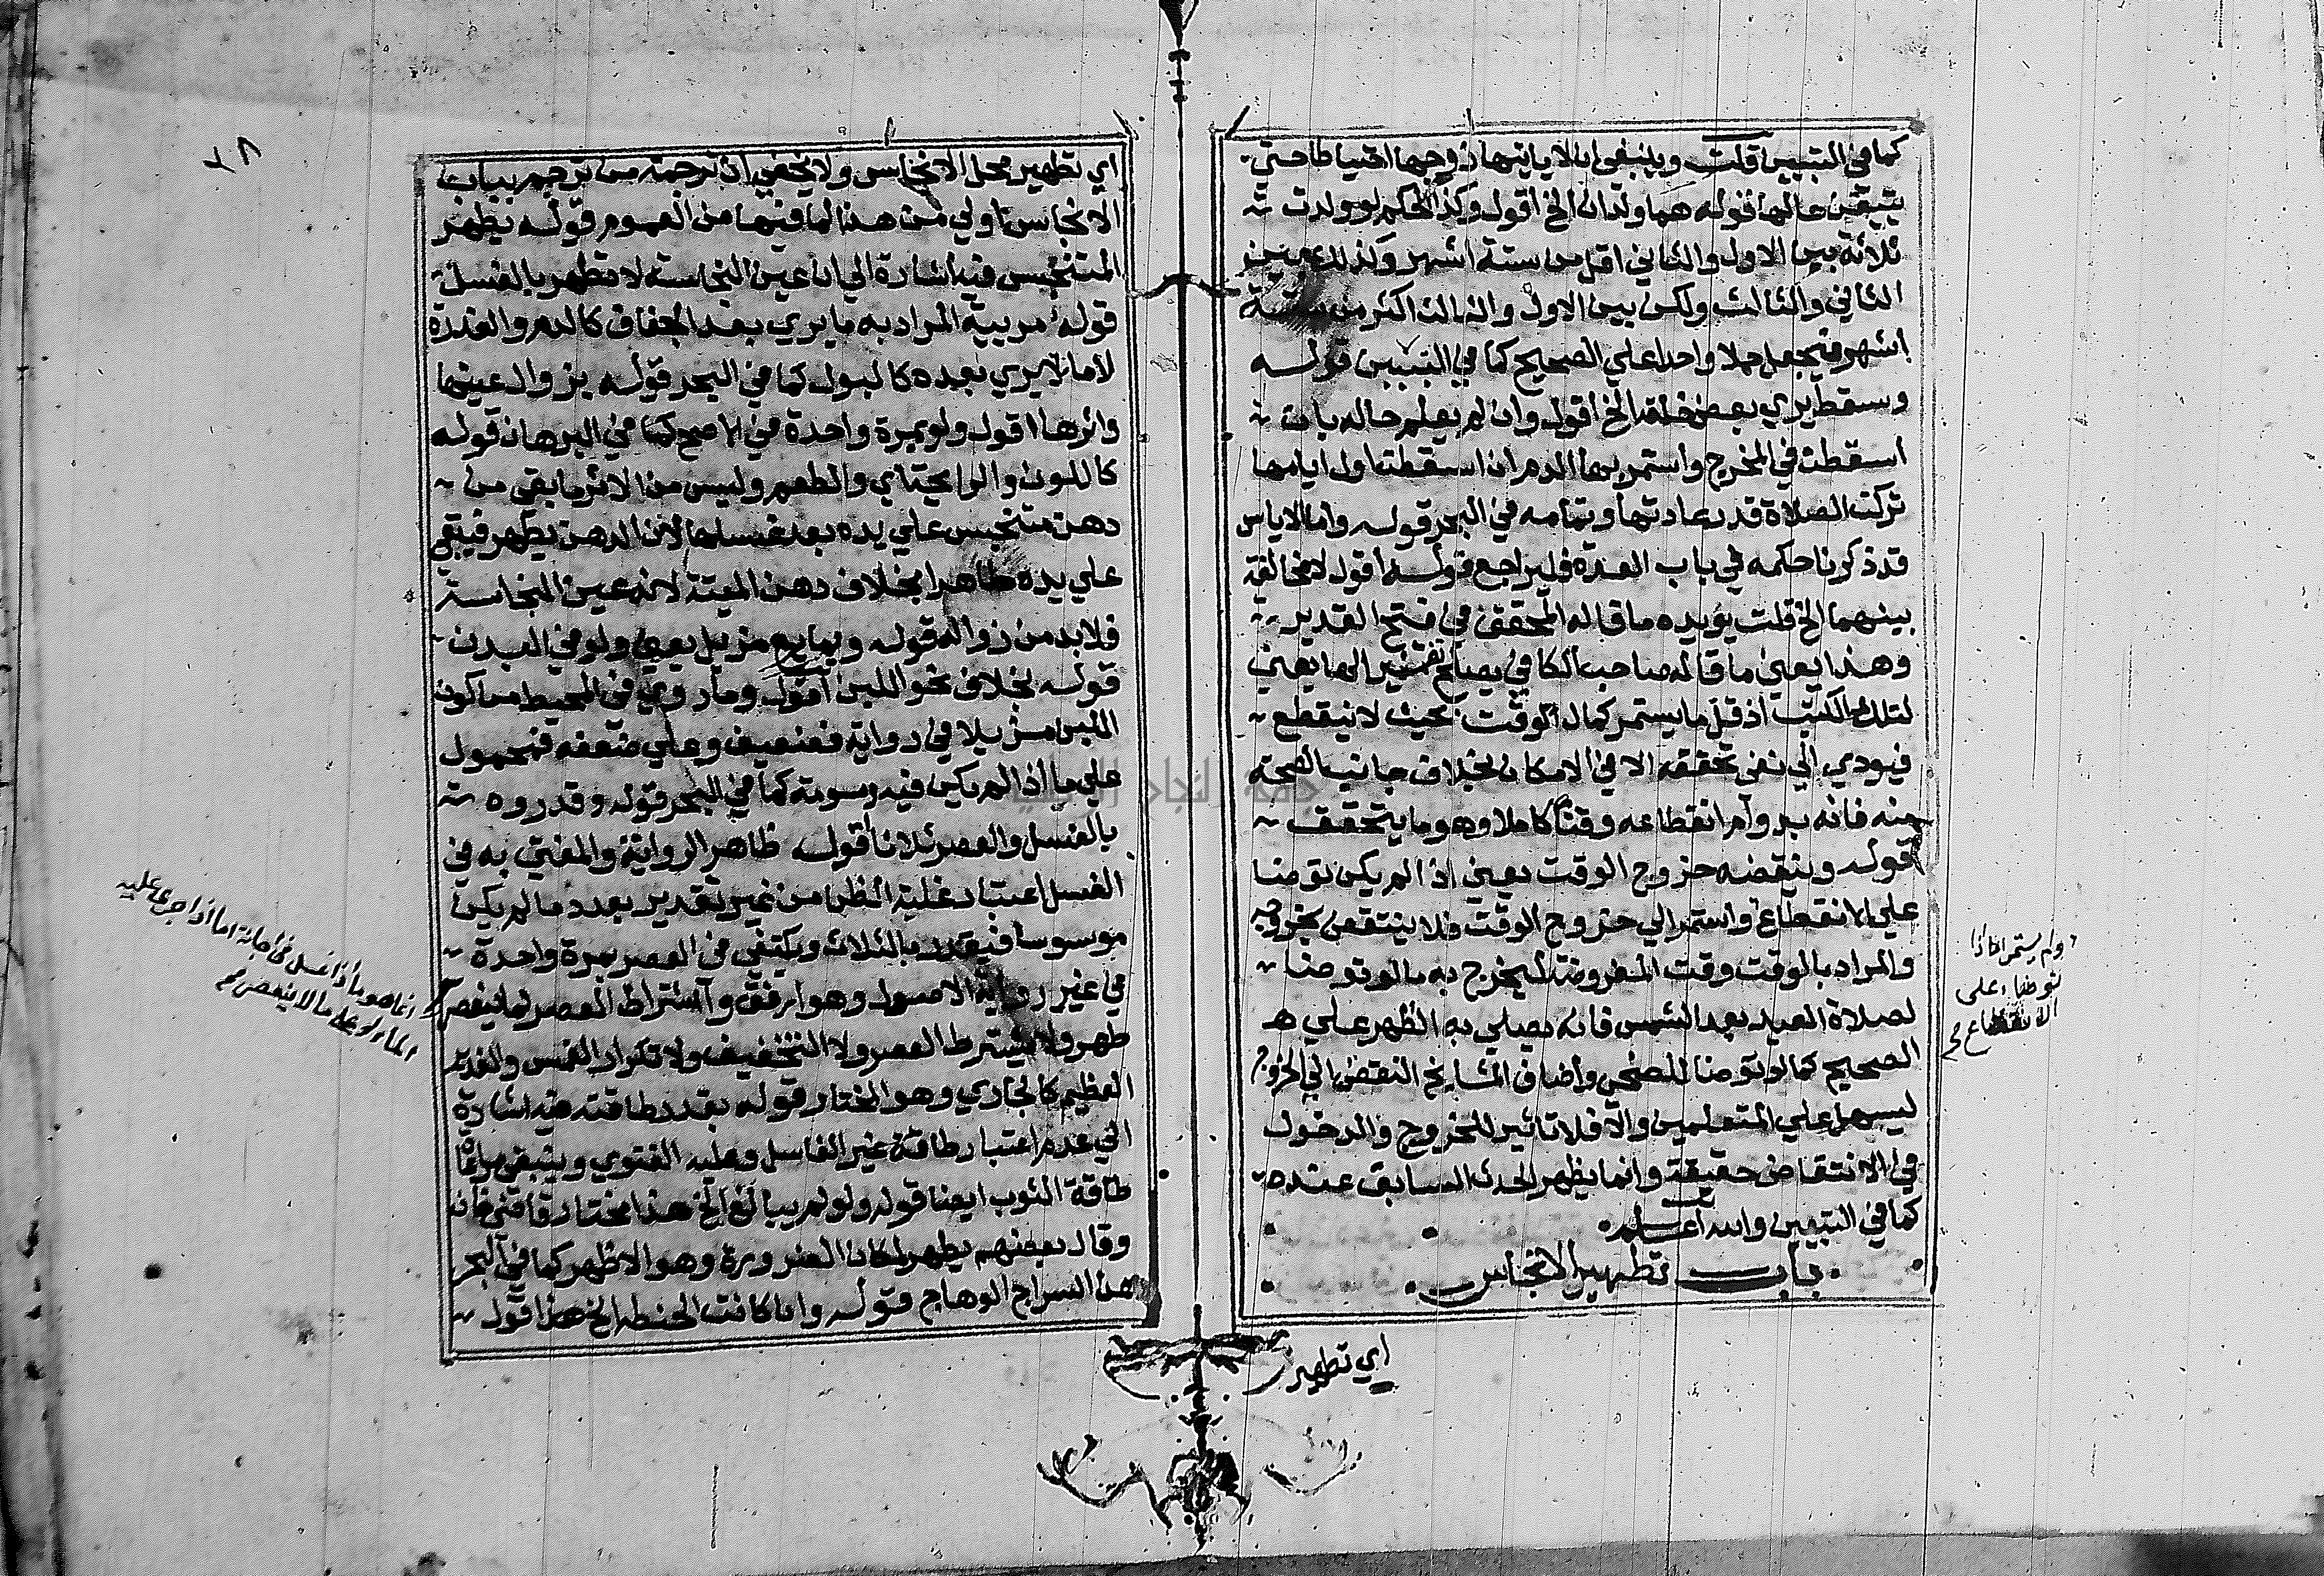 كما في التبيين قلت وينبغي ان لا ياتيها زوجها احتياطا حتى
يتيقن حالها قوله هما ولدان الخ اقول وكذا الحكم لو ولدت
ثلاثة بين الاول والثاني اقل من ستة اشهر وكذلك بين
الثاني والثالث ولكن بين الاول والثالث اكثر من ستة
اشهر فيجعل حملا واحدا علي الصحيح كما في التبيين قوله
وسقط يري بعض خلقه الخ اقول وان لم يعلم حاله بان
اسقطت في المخرج واستمر بها الدم ان اسقطت اول ايامها
تركت الصلاة قدر عادتها وتمامه في البحر قوله واما الاياس
قد ذكرنا حكمه في باب العدة فليراجع قوله اقول لا مخالفة
بينهما الخ قلت يؤيده ما قاله المحقق في فتح القدير
وهذا يعني ما قاله صاحب الكافي يصلح تفسيرا لما يعني
لتلك الكتب اذ قل ما يستمر كمال الوقت بحيث لا ينقطع
فيودي الي نفي تحققه الا في الامكان بخلاف جانب الصحة
منه فانه بدوام انقطاعه وقتا كاملا وهو ما يتحقق
قوله وينقضه خروج الوقت يعني اذا لم يكن توضا
علي الانقطاع واستمر الي خروج الوقت فلا ينتقض بخروجه
والمراد بالوقت وقت المفروضة ليخرج به ما لو توضا
لصلاة العيد بعد الشمس فانه يصلي به الظهر علي
الصحيح كما لو توضا للضحى واضاف المشايخ النقض الي الخروج
ليسهل علي المتعلمين والا فلا تاثير للخروج والدخول
في الانتقاض حقيقة وانما يظهر الحدث السابق عنده
كما في التبيين والله اعلم
باب تطهير الانجاس
اي تطهير
ولم يستمر اما اذا
توضا على
الانقطاع صح
٢٨
اي تطهير محل الانجاس ولا يخفي ان ترجمة من ترجم بباب
الانجاس اولي من هذا لما فيها من العموم قوله يطهر
المتنجس فيه اشارة الي ان عين النجاسة لا تطهر بالغسل
قوله مريية المراد به ما يري بعد الجفاف كالدم والعذرة
لا ما لا يري بعده كالبول كما في البحر قوله بزوال عينها
واثرها اقول ولو بمرة واحدة في الاصح كما في البرهان قوله
كاللون والرايحة اي والطعم وليس من الاثر ما بقي من
دهن متنجس علي يده بعد غسلها لان الدهن يطهر فيبقي
علي يده طاهرا بخلاف دهن الميتة لانه عين النجاسة
فلا بد من زواله قوله وبمايع مزيل يعني ولو في البدن
قوله بخلاف نحو اللبن اقول وما روي في المحيط من كون
اللبن مزيلا في رواية فضعيف وعلي ضعفه فمحمول
علي ما اذا لم يكن فيه دسومة كما في البحر قوله وقدروه
بالغسل والعصر ثلاثا اقول ظاهر الرواية والمفتى به في
الغسل اعتبار غلبة الظن من غير تقدير بعدد ما لم يكن
موسوسا فيقدر بالثلاث ويكتفي في العصر بمرة واحدة
في غير رواية الاصول وهو ارفق واشتراط العصر لما ينعصر
طهر ولا يشترط العصر ولا التجفيف ولا تكرار الغمس والغدير
العظيم كالجاري وهو المختار قوله بقدر طاقته فيه اشارة
الي عدم اعتبار طاقة غير الغاسل وعليه الفتوي وينبغي مراعاة
طاقة الثوب ايضا قوله ولو لم يبالغ الخ هذا مختار قاضي خان
وقال بعضهم يطهر لمكان الضرورة وهو الاظهر كما في البحر
عن السراج الوهاج قوله وان كانت الحنطة الخ هذا قول
انما هو ما اذا غسل في اجانة اما اذا جرى عليه
الماء لو على ما لا ينعصر صح